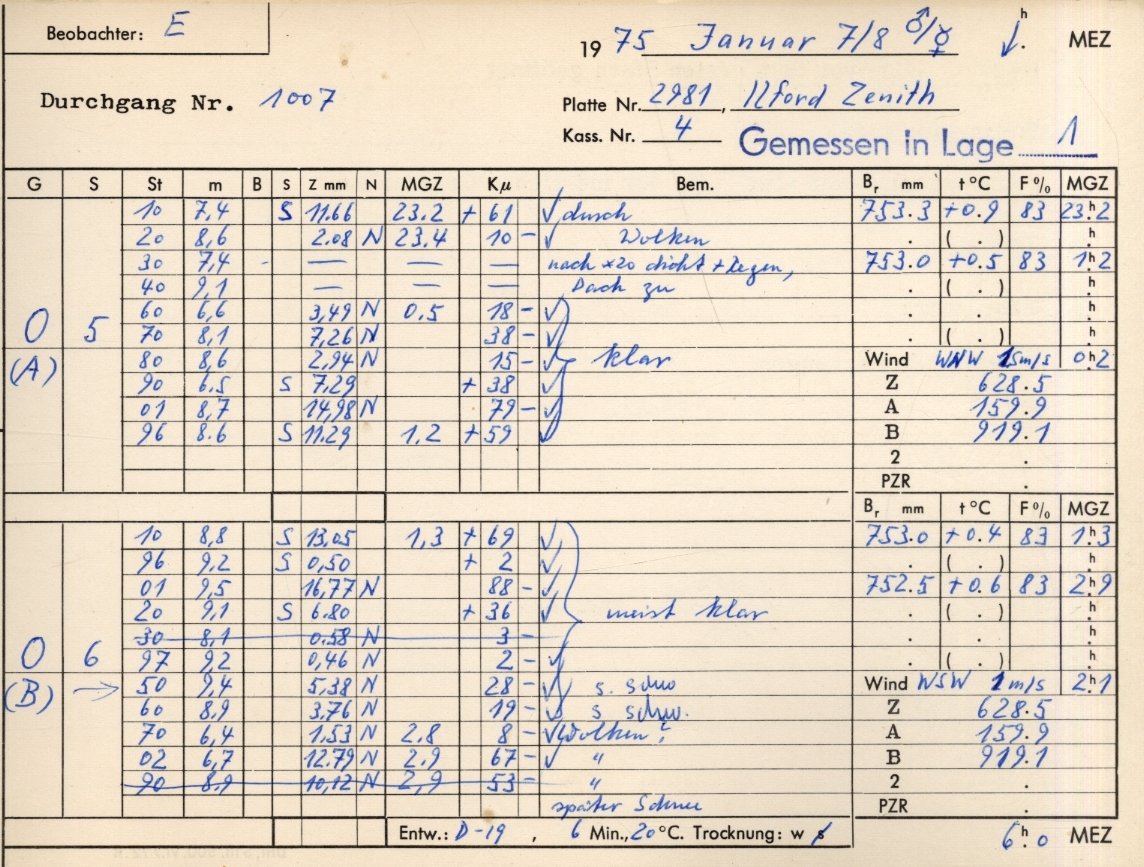 Beobachter: E
19 75 Januar 7/8 ♂/☿ h MEZ
Durchgang Nr. 1007
Platte Nr. 2981, Ilford Zenith
Kass. Nr. 4 Gemessen in Lage 1
G S St m B S Z mm N MGZ Kµ Bem. Br mm t°C F% MGZ
10 7,4 S 11.66 23.2 + 61 √ durch 753.3 +0.9 83 23h.2
20 8,6 2.08 N 23.4 10 - √ Wolken . ( . ) h.
30 7,4 - — — — nach *20 dicht + Regen, 753.0 +0.5 83 1h.2
40 9,1 — — — Dach zu . ( . ) h.
0 5 60 6,6 3,49 N 0.5 18 - √ . . h.
70 8,1 7,26 N 38 - √ . ( . ) h.
(A) 80 8,6 2,94 N 15 - √ klar Wind WNW 1 5m/s 0h.2
90 6.5 S 7,29 + 38 √ Z 628.5
01 8,7 14,98 N 79 - √ A 159.9
96 8.6 S 11.29 1,2 + 59 √ B 919.1
2 .
PZR .
Br mm t°C F% MGZ
10 8,8 S 13,05 1,3 + 69 √ 753.0 +0.4 83 1h.3
96 9,2 S 0,50 + 2 √ . ( . ) h.
01 9,5 16,77 N 88 - √ 752.5 +0.6 83 2h.9
20 9,1 S 6.80 + 36 √ meist klar . ( . ) h.
30 8,1 0.58 N 3 - . . h.
0 6 97 9,2 0,46 N 2 - √ . ( . ) h.
(B) → 50 9,4 5,38 N 28 - √ s. schw Wind WSW 1 m/s 2h.1
60 8,9 3,76 N 19 - √ s schw. Z 628.5
70 6,4 1.53 N 2.8 8 - √ Wolken? A 159.9
02 6,7 12.79 N 2,9 67 - √ " B 919.1
90 8.9 10,12 N 2,9 53 - " 2 .
später Schnee PZR .
Entw.: D-19, 6 Min., 20°C. Trocknung: w s 6h.0 MEZ